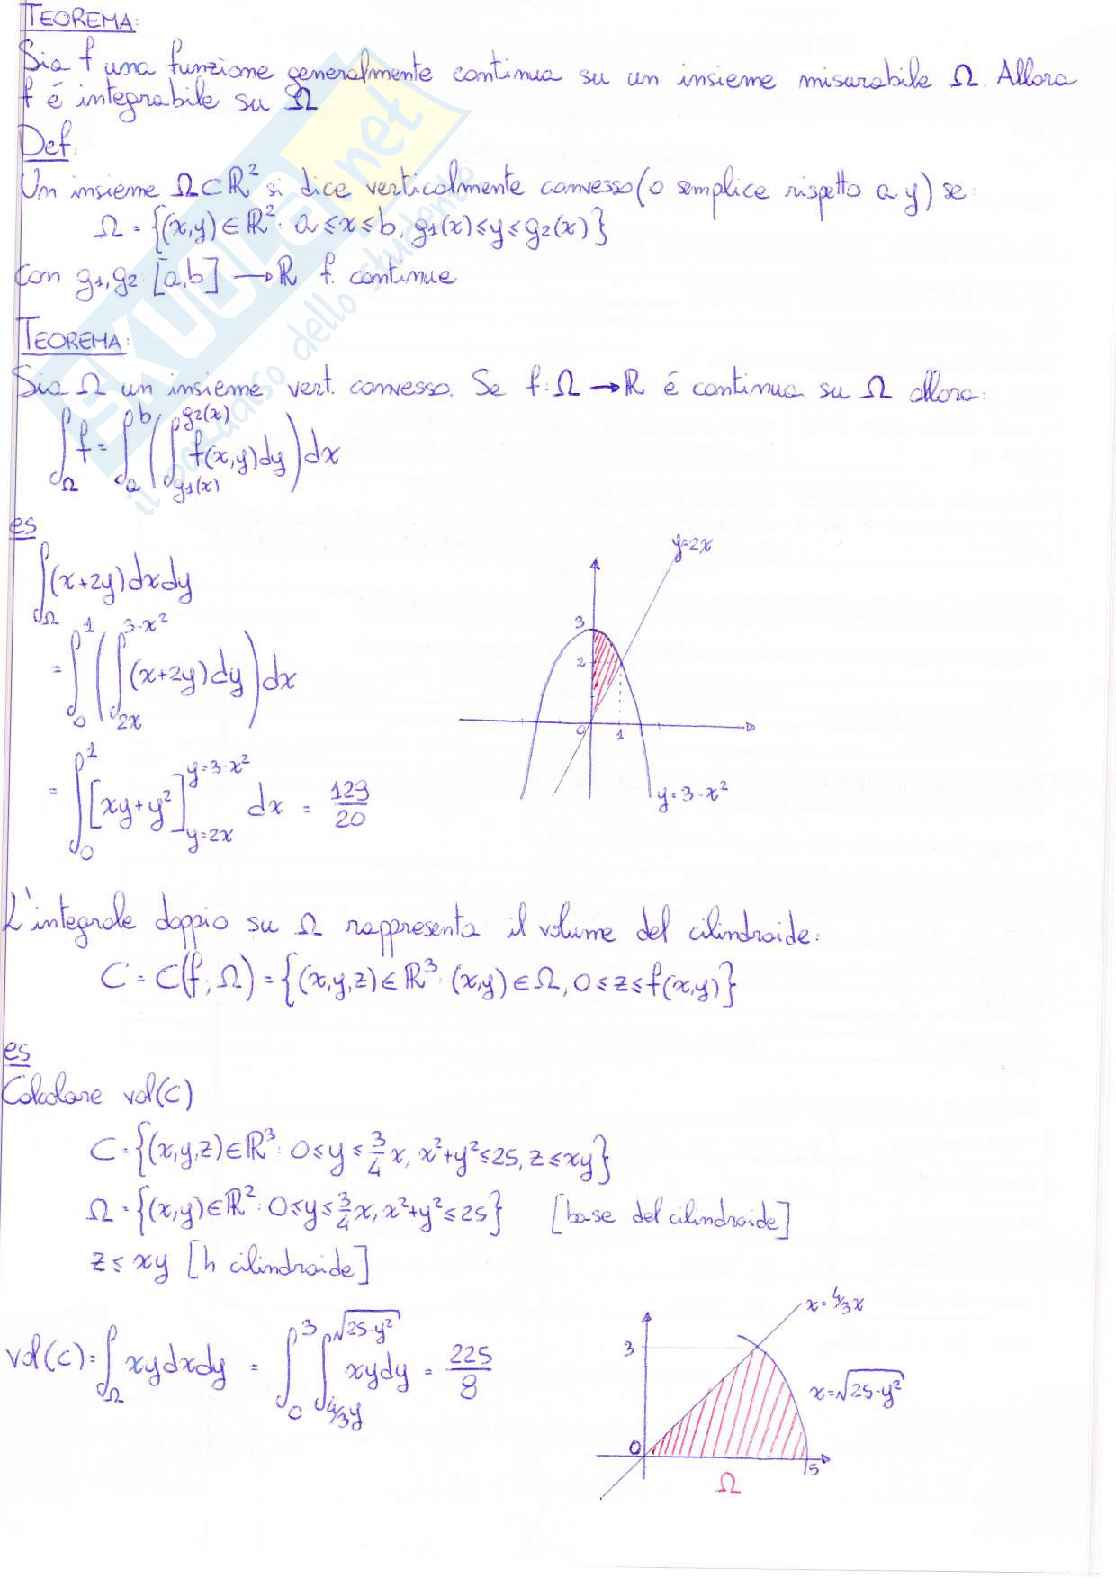 TEOREMA:
Sia f una funzione generalmente continua su un insieme misurabile Ω. Allora
f é integrabile su Ω
Def.
Un insieme Ω⊂ℝ² si dice verticalmente convesso (o semplice rispetto a y) se:
Ω = {(x,y)∈ℝ²: a≤x≤b, g1(x)≤y≤g2(x)}
con g1,g2: [a,b] → ℝ f. continue
TEOREMA:
Sia Ω un insieme vert. convesso. Se f:Ω→ℝ é continua su Ω allora:
∫_Ω f = ∫_a^b (∫_{g1(x)}^{g2(x)} f(x,y)dy)dx
es
∫_Ω (x+2y)dxdy
= ∫_0^1 (∫_{2x}^{3-x²} (x+2y)dy)dx
= ∫_0^1 [xy+y²]_{y=2x}^{y=3-x²} dx = 129/20
y=2x
3
2
0
1
y=3-x²
L'integrale doppio su Ω rappresenta il volume del cilindroide:
C = C(f,Ω) = {(x,y,z)∈ℝ³: (x,y)∈Ω, 0≤z≤f(x,y)}
es
Calcolare vol(C)
C={(x,y,z)∈ℝ³: 0≤y≤3/4 x, x²+y²≤25, z≤xy}
Ω={(x,y)∈ℝ²: 0≤y≤3/4 x, x²+y²≤25} [base del cilindroide]
z≤xy [h cilindroide]
vol(C)=∫_Ω xydxdy = ∫_0^3 ∫_{4/3y}^{√25-y²} xydy = 225/8
x=4/3x
3
x=√25-y²
0
5
Ω
SKUOLA.net
il paradiso dello studente